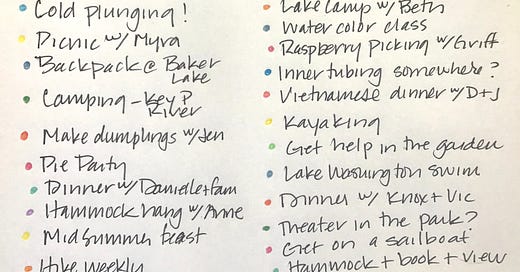 Cold plunging!
Picnic w/ Myra
Backpack @ Baker
Lake
Camping - Key P
River
Make dumplings w/ Jen
Pie Party
Dinner w/ Danielle + fam
Hammock hang w/ Anne
Midsummer feast
Hike weekly
Lake Camp w/ Beth
Water color class
Raspberry Picking w/ Griff
Inner tubing somewhere?
Vietnamese dinner w/ D+J
Kayaking
Get help in the garden
Lake Washington swim
Dinner w/ Knox + Vic
Theater in the park?
Get on a sailboat
Hammock + book + view